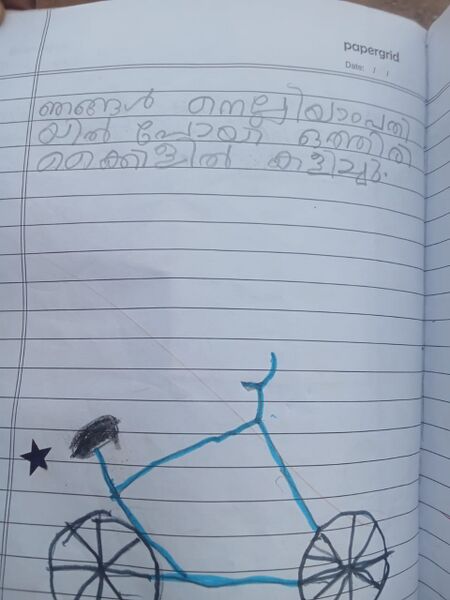 papergrid
Date: / /
ഞങ്ങൾ നെല്ലിയാംപതി
യിൽ പോയി ഒത്തിരി
സൈക്കിളിൽ കളിച്ചു.